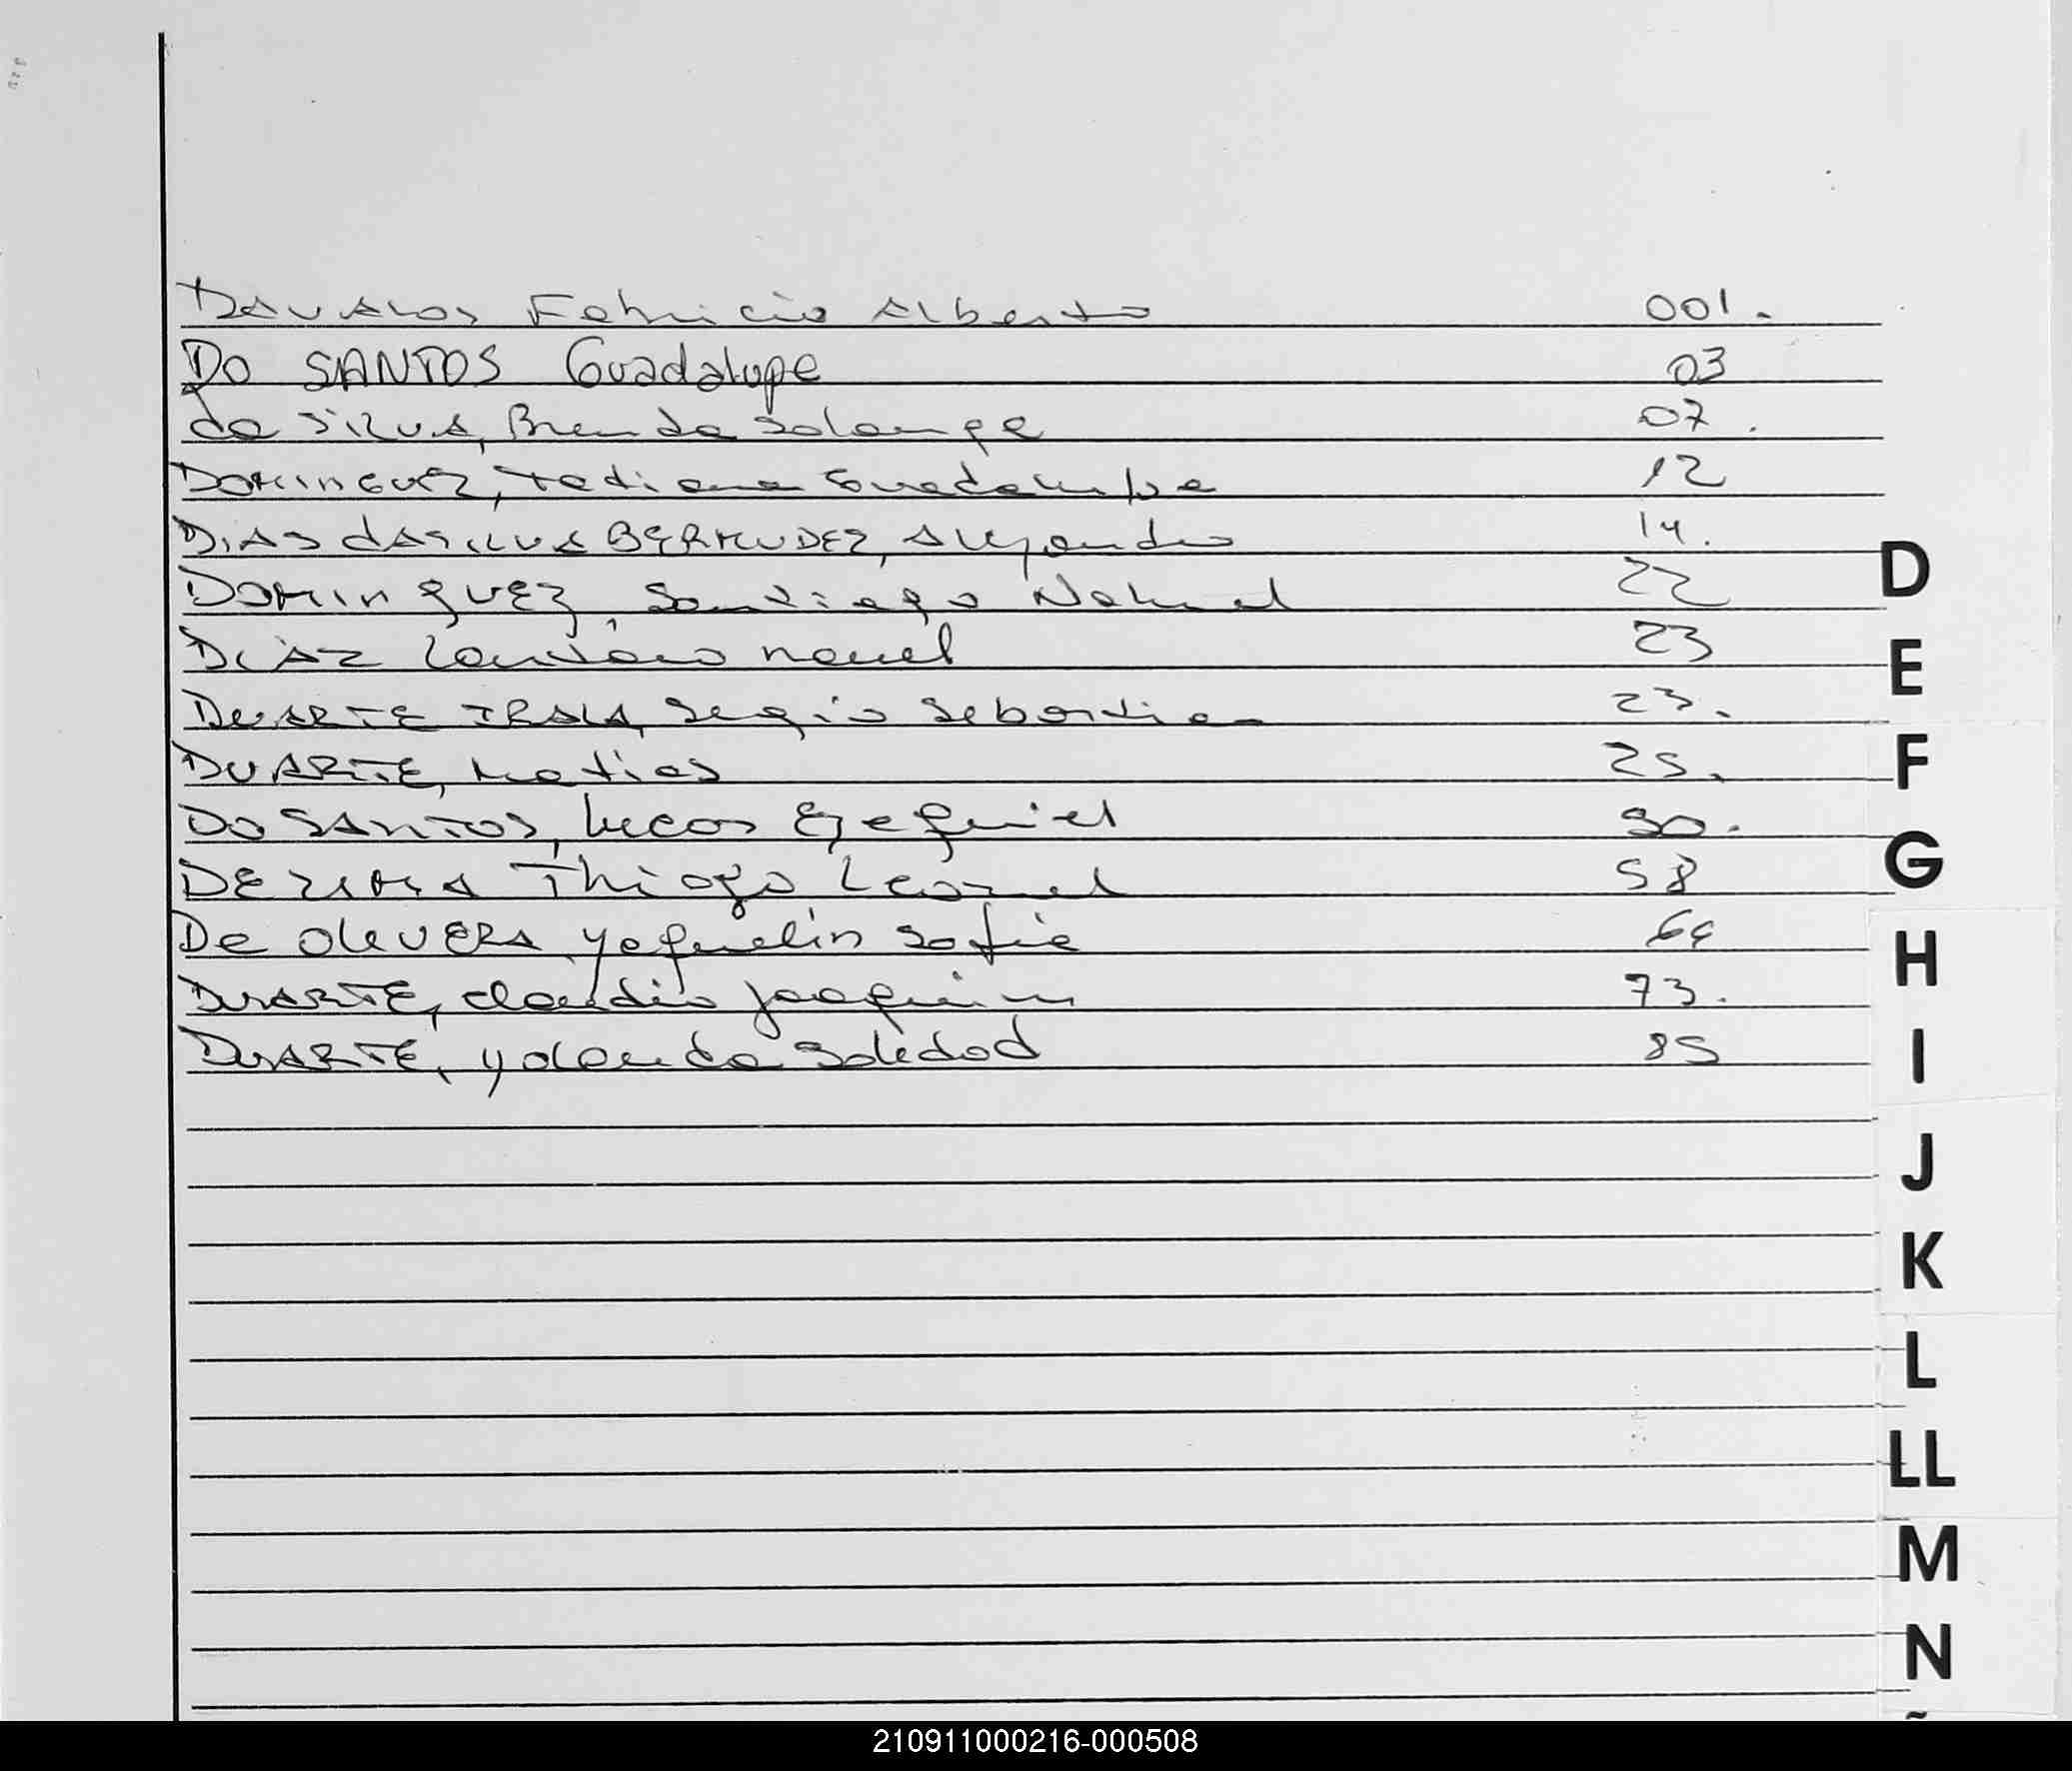 DAVALOS Fabricio Alberto 001.
DO SANTOS Guadalupe 03
da SILVA, Brenda Solange 07.
DOMINGUEZ, Tatiana Guadalupe 12
DIAS dASILVA BERMUDEZ, Alejandro 14.
D
DOMINGUEZ, Santiago Nahuel 22
DIAZ Lautaro nauel 23
E
DUARTE IRALA, Sergio Sebastian 23.
DUARTE, Matias 25.
F
DO SANTOS, Lucas Ezequiel 30.
G
DE LIMA Thiago Leonel 58
De OLIVERA, yaquelin Sofia 64
H
DUARTE, claudio joaquin 73.
DUARTE, yolanda Soledad 85
I
J
K
L
LL
M
N
210911000216-000508